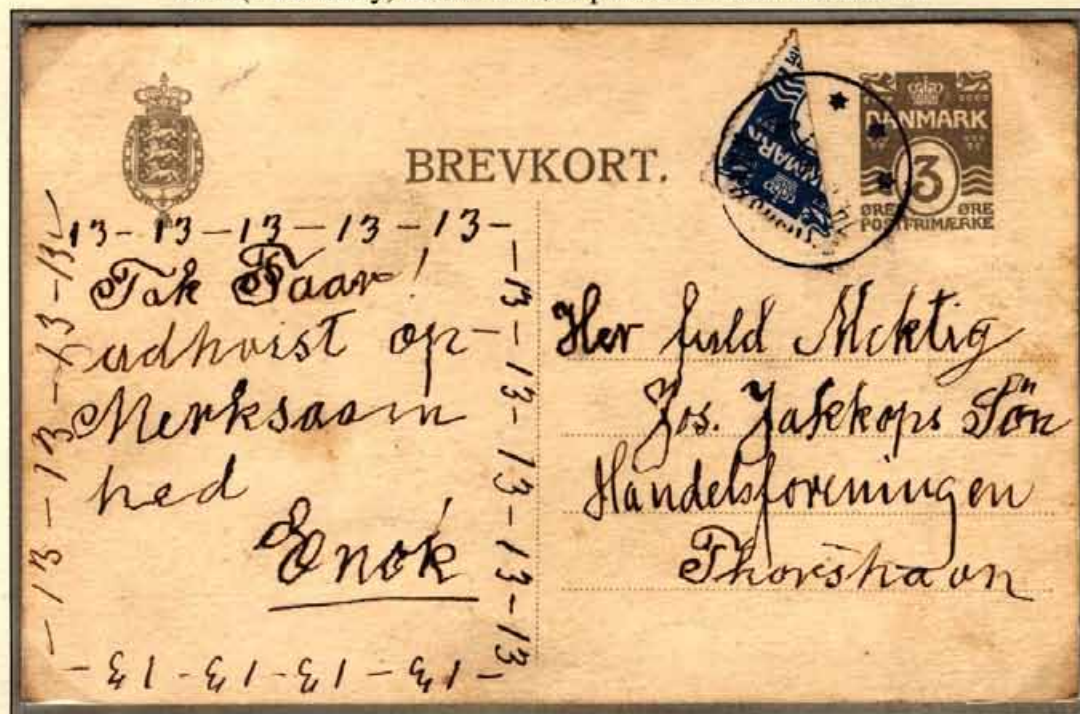 BREVKORT.
DANMARK
3
ØRE ØRE
POSTFRIMÆRKE
DANMARK
13-13-13-13-13-
Tak Faar!
udhvist op-
Merksaam
hed
Enok
-13-13-13-13-13-
-13-13-13-13-
-13-13-13-13-
Her fuld Mektig
Jos. Jakkops Sön
Handelsforeningen
Thorshavn